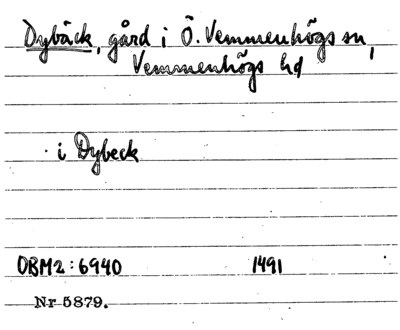 Dybäck, gård i Ö. Vemmenhögs sn,
Vemmenhögs hd
i Dybeck
DBM2:6940 1491
Nr 5879.